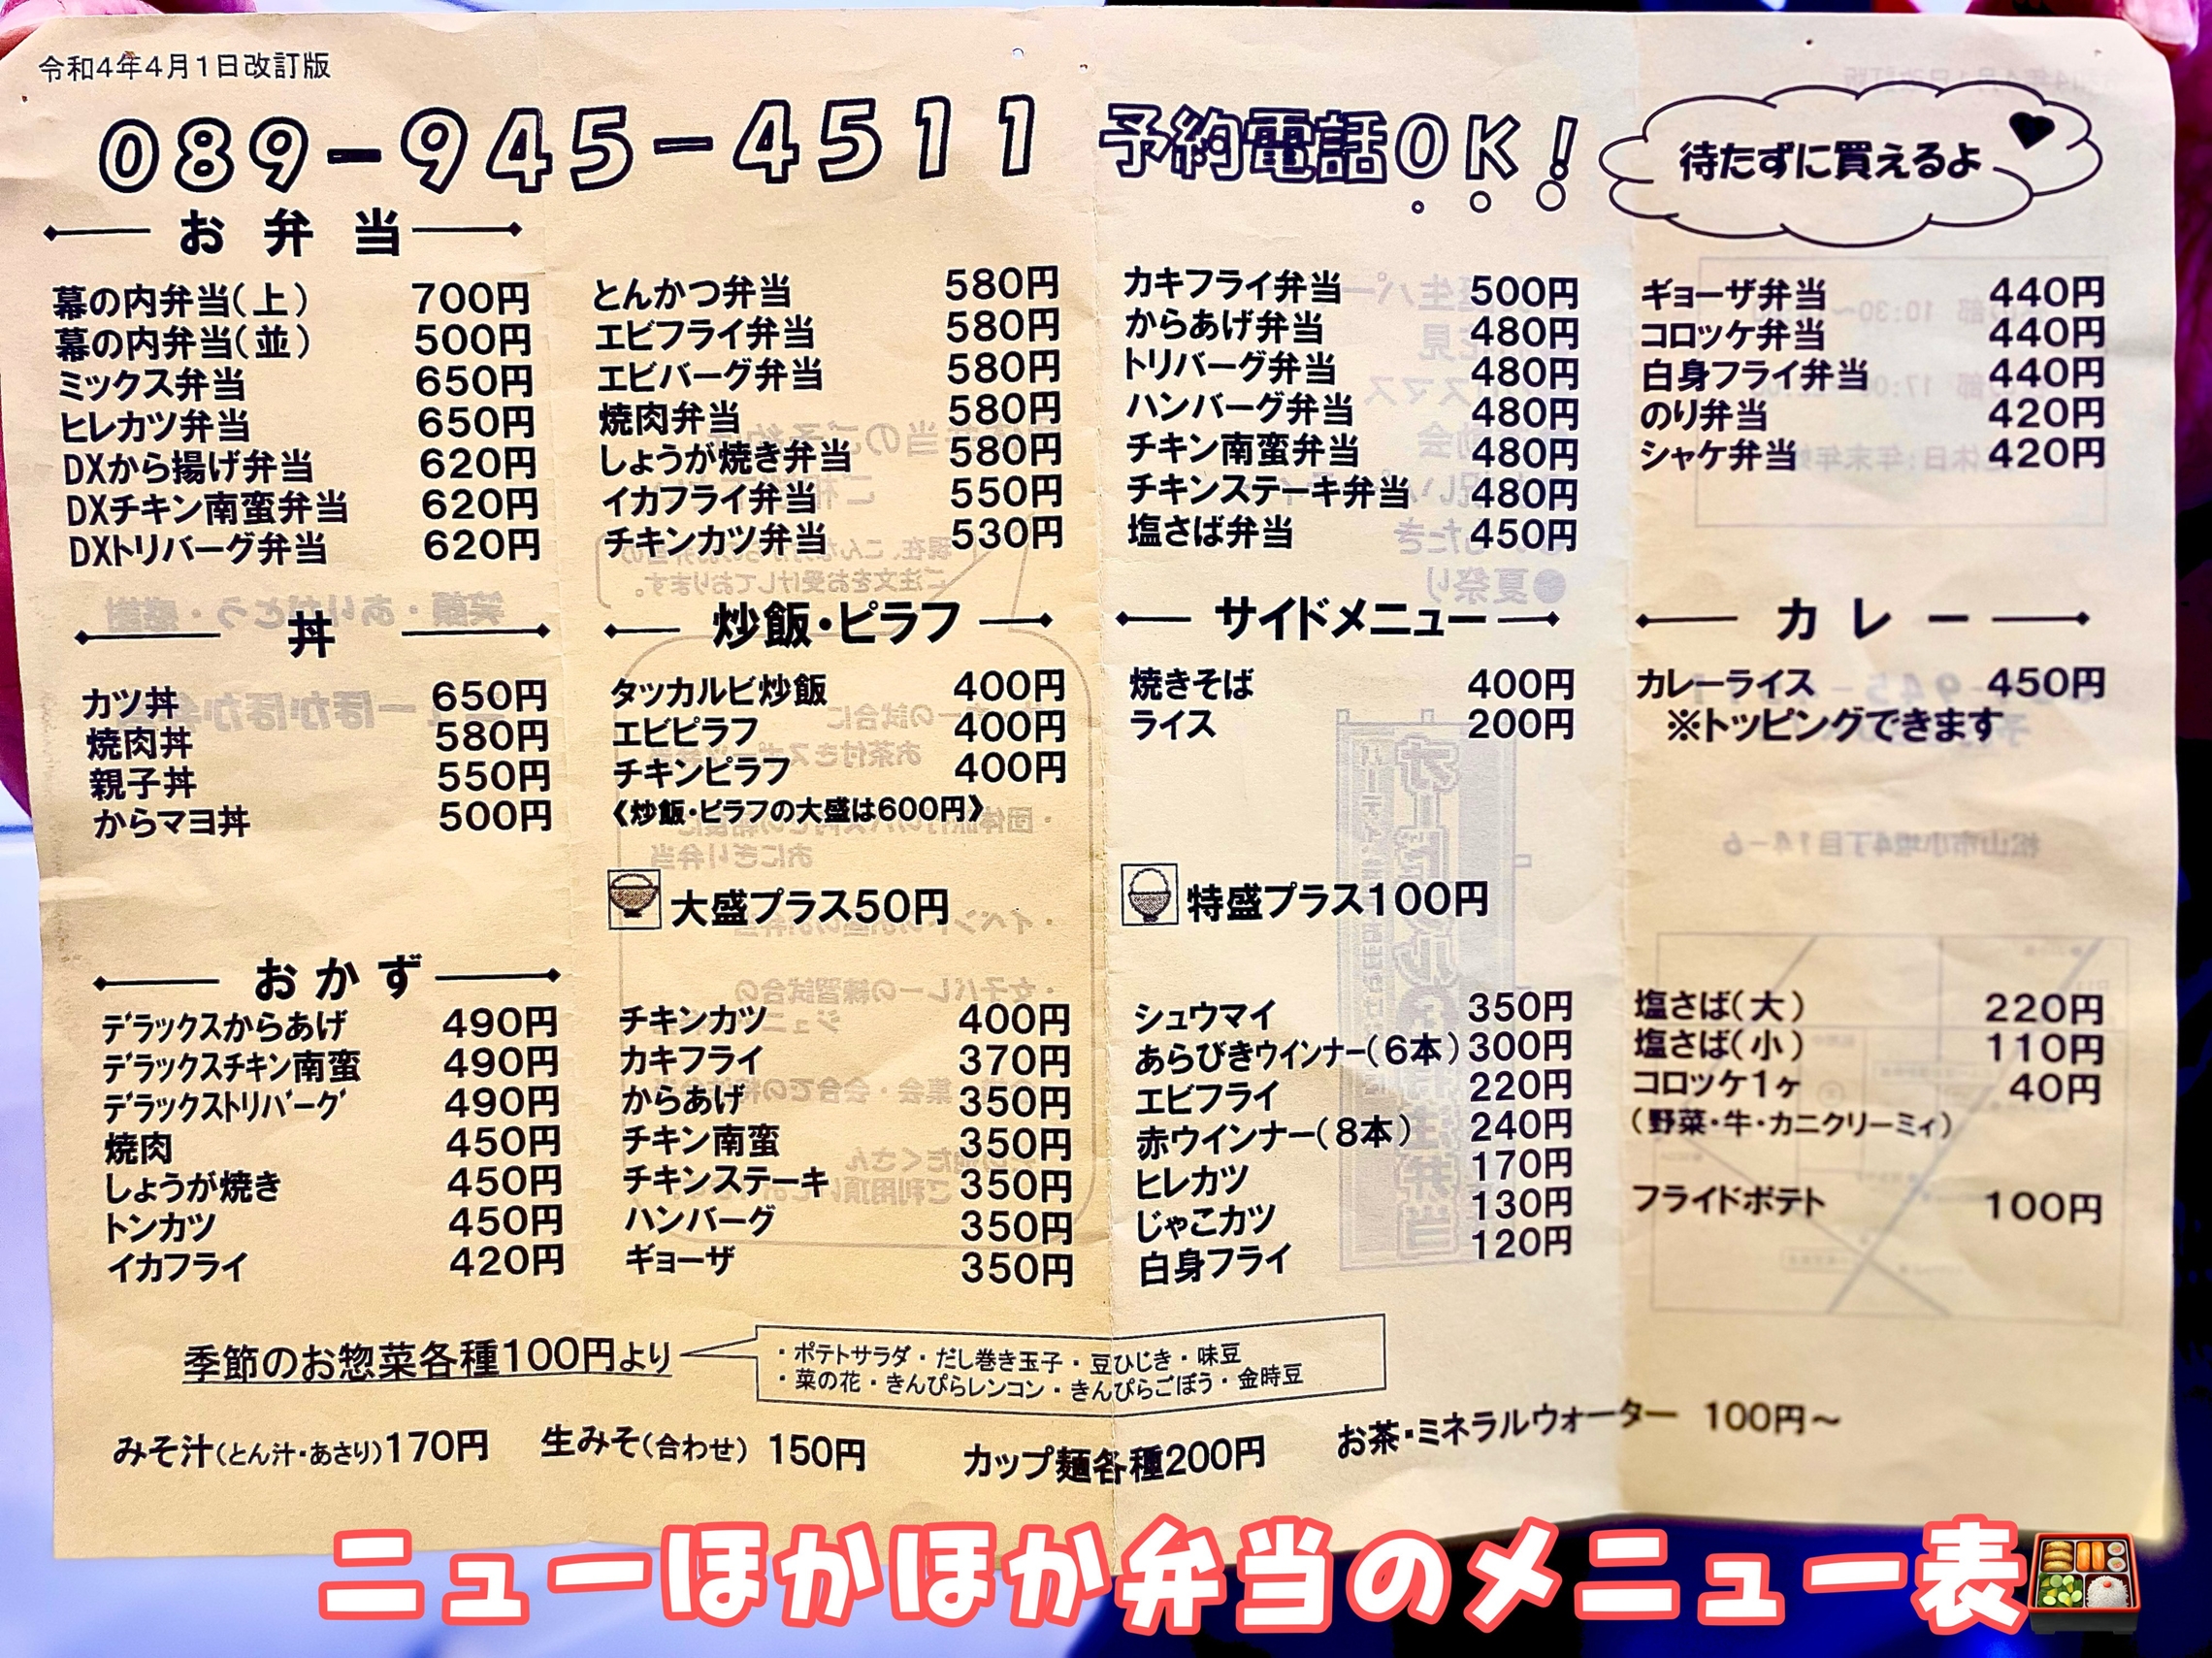 令和4年4月1日改訂版
089-945-4511 予約電話OK! 待たずに買えるよ
お弁当
幕の内弁当(上) 700円
幕の内弁当(並) 500円
ミックス弁当 650円
ヒレカツ弁当 650円
DXから揚げ弁当 620円
DXチキン南蛮弁当 620円
DXトリバーグ弁当 620円
とんかつ弁当 580円
エビフライ弁当 580円
エビバーグ弁当 580円
焼肉弁当 580円
しょうが焼き弁当 580円
イカフライ弁当 550円
チキンカツ弁当 530円
カキフライ弁当 500円
からあげ弁当 480円
トリバーグ弁当 480円
ハンバーグ弁当 480円
チキン南蛮弁当 480円
チキンステーキ弁当 480円
塩さば弁当 450円
ギョーザ弁当 440円
コロッケ弁当 440円
白身フライ弁当 440円
のり弁当 420円
シャケ弁当 420円
丼
カツ丼 650円
焼肉丼 580円
親子丼 550円
からマヨ丼 500円
炒飯・ピラフ
タッカルビ炒飯 400円
エビピラフ 400円
チキンピラフ 400円
《炒飯・ピラフの大盛は600円》
サイドメニュー
焼きそば 400円
ライス 200円
カレー
カレーライス 450円
※トッピングできます
大盛プラス50円
特盛プラス100円
おかず
デラックスからあげ 490円
デラックスチキン南蛮 490円
デラックストリバーグ 490円
焼肉 450円
しょうが焼き 450円
トンカツ 450円
イカフライ 420円
チキンカツ 400円
カキフライ 370円
からあげ 350円
チキン南蛮 350円
チキンステーキ 350円
ハンバーグ 350円
ギョーザ 350円
シュウマイ 350円
あらびきウインナー(6本) 300円
エビフライ 220円
赤ウインナー(8本) 240円
ヒレカツ 170円
じゃこカツ 130円
白身フライ 120円
塩さば(大) 220円
塩さば(小) 110円
コロッケ1ヶ 40円
(野菜・牛・カニクリーミィ)
フライドポテト 100円
季節のお惣菜各種100円より
・ポテトサラダ・だし巻き玉子・豆ひじき・味豆
・菜の花・きんぴらレンコン・きんぴらごぼう・金時豆
みそ汁(とん汁・あさり)170円 生みそ(合わせ) 150円 カップ麺各種200円 お茶・ミネラルウォーター 100円～
ニューほかほか弁当のメニュー表